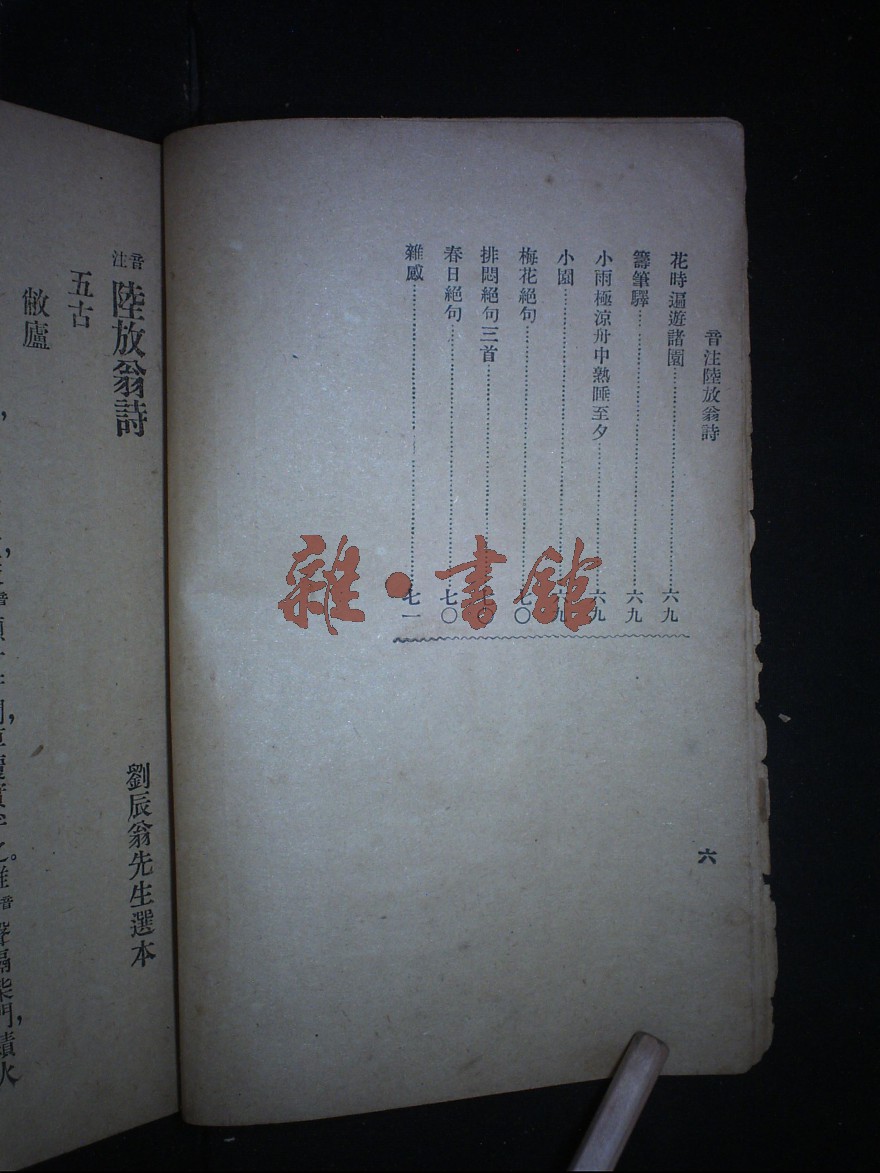 音注陸放翁詩
花時遍遊諸園⋯⋯六九
籌筆驛⋯⋯六九
小雨極涼舟中熟睡至夕⋯⋯六九
小園⋯⋯六九
梅花絕句⋯⋯七〇
排悶絕句三首⋯⋯七〇
春日絕句⋯⋯七〇
雜感⋯⋯七一
六
雜·書館
音注 陸放翁詩
劉辰翁先生選本
五古
敝廬